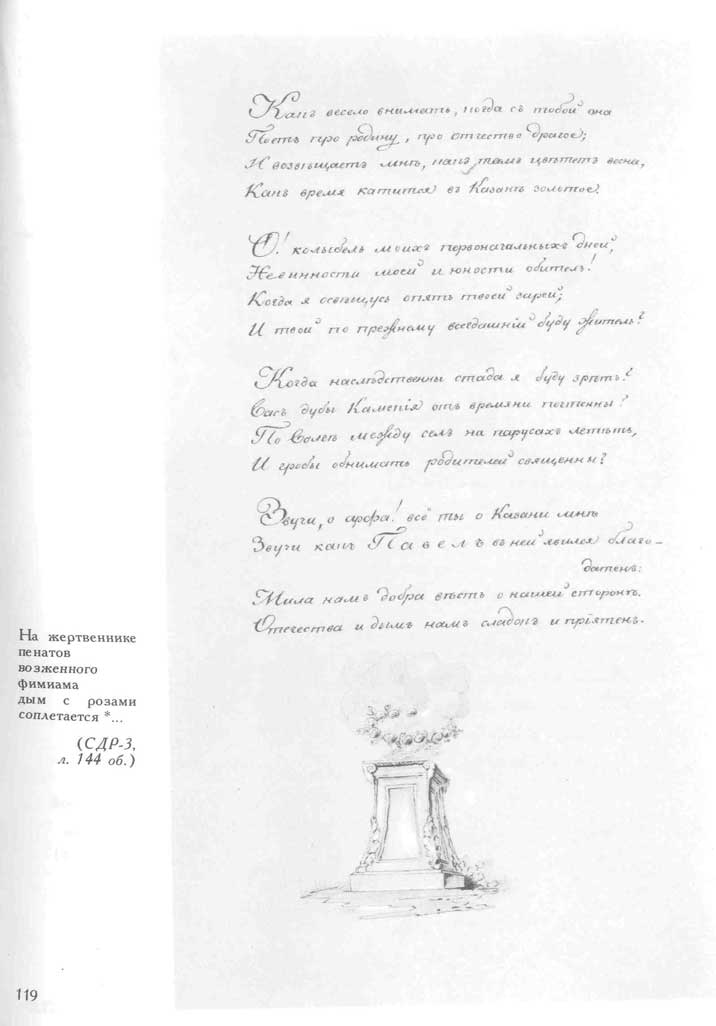 Какъ весело внимать, когда съ тобой она
Поетъ про родину, про отчество драгое;
И возвѣщаетъ мнѣ, какъ тамъ цвѣтетъ весна,
Какъ время катится въ Казанѣ золотое.
О! колыбель моихъ первоначальныхъ дней,
Невинности моей и юности обитель!
Когда я освѣщусь опять твоей зарей;
И твой по прежнему всегдашній буду житель?
Когда наслѣдственны стада я буду зрѣть?
Васъ дубы Камскія отъ времяни почтенны?
По Волгѣ между селъ на парусахъ летѣть,
И гробы обнимать родителей священны?
Звучи, о арфа! всё ты о Казани мнѣ
Звучи какъ Павелъ въ ней явился благо-
датенъ:
Мила намъ добра вѣсть о нашей сторонѣ.
Отечества и дымъ намъ сладокъ и пріятенъ.
На жертвеннике
пенатов
возженного
фимиама
дым с розами
соплетается *...
(СДР-3,
л. 144 об.)
119